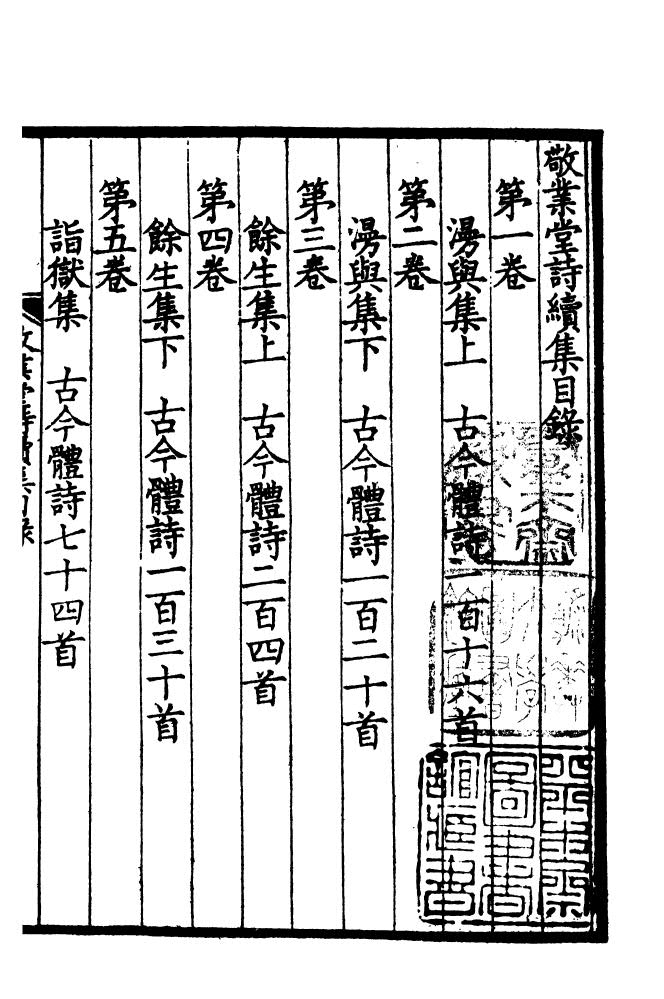 敬業堂詩續集目錄
第一卷
漫與集上　古今體詩一百十六首
第二卷
漫與集下　古今體詩一百二十首
第三卷
餘生集上　古今體詩二百四首
第四卷
餘生集下　古今體詩一百三十首
第五卷
詣獄集　古今體詩七十四首